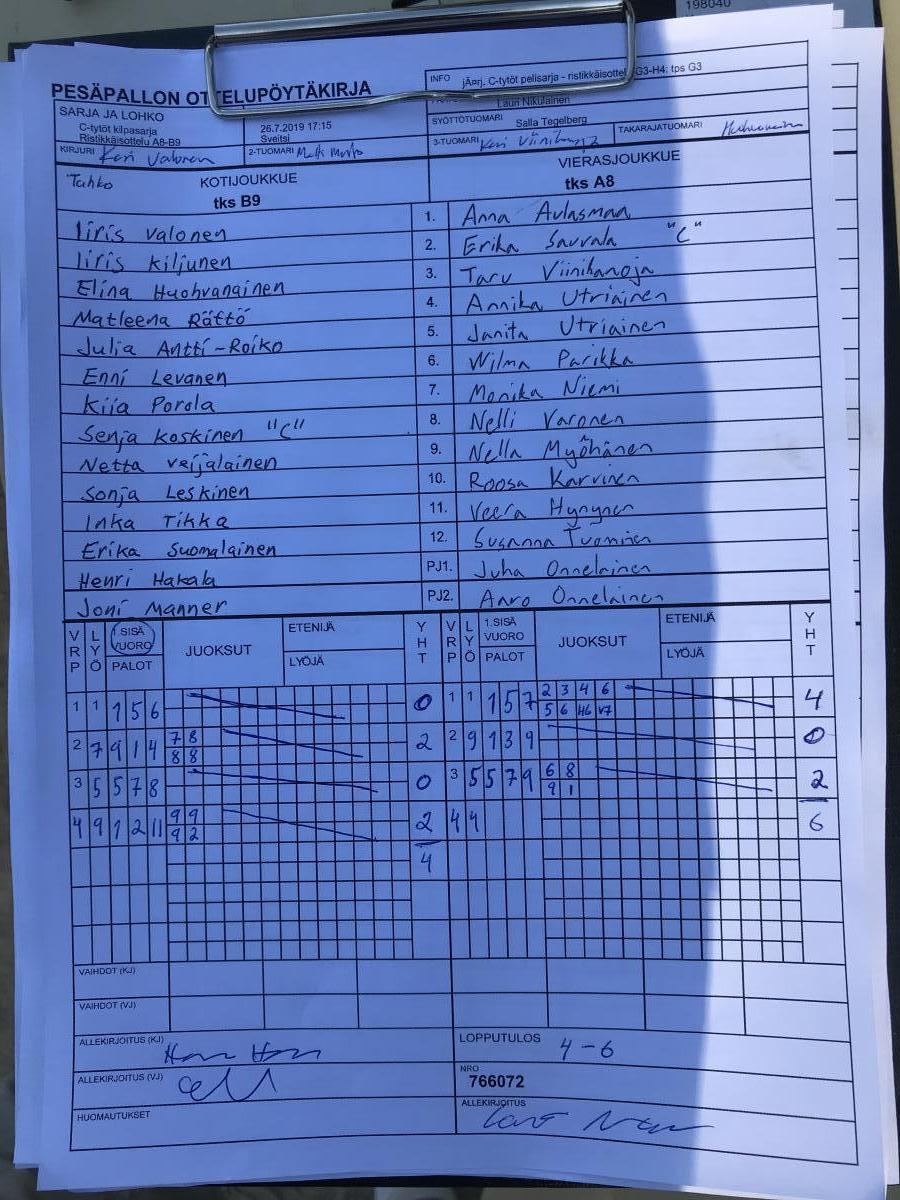 198040
PESÄPALLON OTTELUPÖYTÄKIRJA
INFO jÄprj. C-tytöt pelisarja - ristikkäisottel G3-H4: tps G3
SARJA JA LOHKO
C-tytöt kilpasarja
Ristikkäisottelu A8-B9
26.7.2019 17:15
Sveitsi
Lauri Nikulainen
SYÖTTÖTUOMARI Salla Tegelberg
KIRJURI Keri Valonen
2-TUOMARI
3-TUOMARI
TAKARAJATUOMARI
Tahko KOTIJOUKKUE
tks B9
VIERASJOUKKUE
tks A8
Iiris Valonen 1. Anna Aulasmaa
Iiris Kiljunen 2. Erika Savvala "C"
Elina Huohvanainen 3. Taru Viinikanoja
Matleena Rättö 4. Annika Utriainen
Julia Antti-Roiko 5. Janita Utriainen
Enni Levanen 6. Wilma Parikka
Kiia Porola 7. Monika Niemi
Senja Koskinen "C" 8. Nelli Varonen
Netta Veijalainen 9. Nella Myöhänen
Sonja Leskinen 10. Roosa Karvinen
Inka Tikka 11. Veera Hynynen
Erika Suomalainen 12. Susanna Tuominen
Henri Hakala PJ1. Juha Onnelainen
Joni Manner PJ2. Aaro Onnelainen
VRP LYÖ 1.SISÄ VUORO PALOT JUOKSUT ETENIJÄ LYÖJÄ YHT VRP LYÖ 1.SISÄ VUORO PALOT JUOKSUT ETENIJÄ LYÖJÄ YHT
1 1 1 5 6 0 1 1 1 5 7 2 3 4 6 4
5 6 H6 V7
2 7 9 1 4 7 8 2 2 9 1 3 9 0
8 8
3 5 5 7 8 0 3 5 5 7 9 6 8 2
9 1
4 9 1 2 11 9 9 2 4 4 6
9 2
4
VAIHDOT (KJ)
VAIHDOT (VJ)
ALLEKIRJOITUS (KJ)
LOPPUTULOS 4-6
ALLEKIRJOITUS (VJ)
NRO
766072
HUOMAUTUKSET
ALLEKIRJOITUS